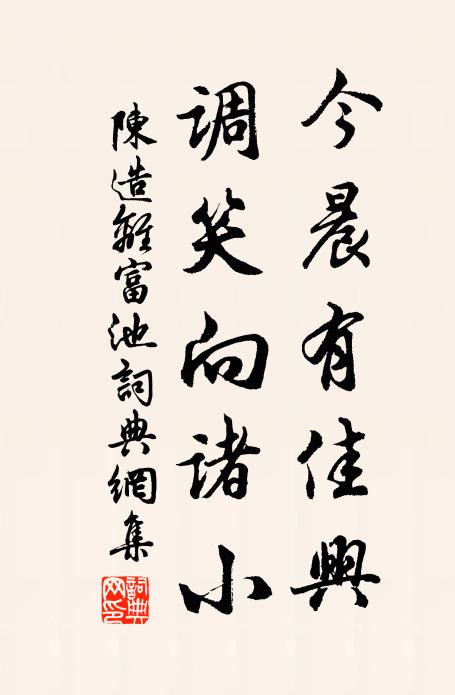 今晨有佳興
調笑向諸小
陳造離富池詞典網集
詞典網印